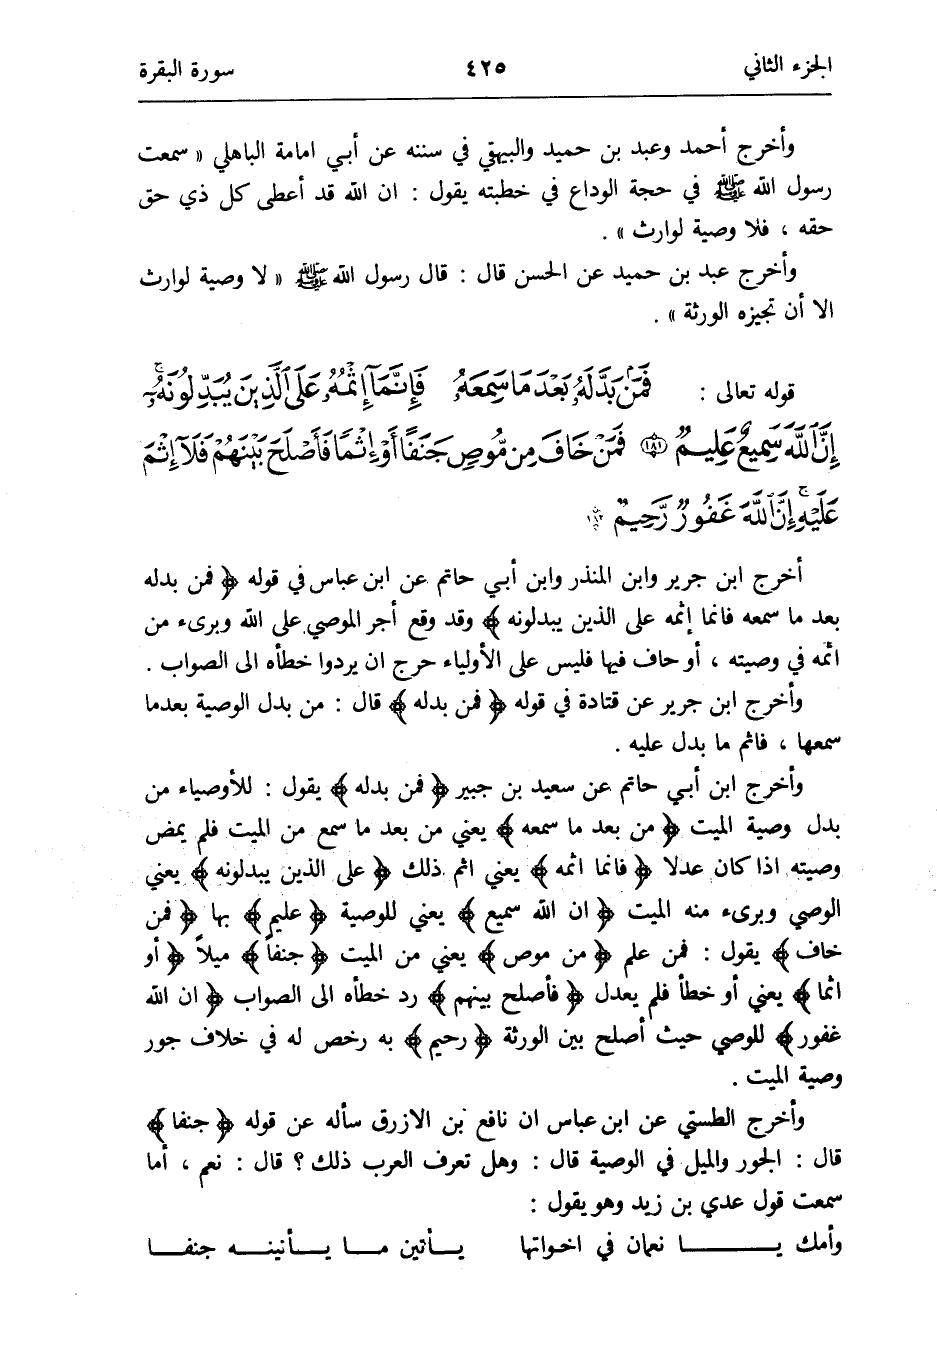 الجزء الثاني ٤٢٥ سورة البقرة
وأخرج أحمد وعبد بن حميد والبيهقي في سننه عن أبي امامة الباهلي « سمعت
رسول الله ﷺ في حجة الوداع في خطبته يقول : ان الله قد أعطى كل ذي حق
حقه ، فلا وصية لوارث » .
وأخرج عبد بن حميد عن الحسن قال : قال رسول الله ﷺ « لا وصية لوارث
الا أن تجيزه الورثة » .
قوله تعالى : فَمَنۢ بَدَّلَهُۥ بَعْدَ مَا سَمِعَهُۥ فَإِنَّمَآ إِثْمُهُۥ عَلَى ٱلَّذِينَ يُبَدِّلُونَهُۥٓۚ
إِنَّ ٱللَّهَ سَمِيعٌ عَلِيمٌ ﴿١٨١﴾ فَمَنْ خَافَ مِن مُّوصٍ جَنَفًا أَوْ إِثْمًا فَأَصْلَحَ بَيْنَهُمْ فَلَآ إِثْمَ
عَلَيْهِۚ إِنَّ ٱللَّهَ غَفُورٌ رَّحِيمٌ ١٨٢
أخرج ابن جرير وابن المنذر وابن أبي حاتم عن ابن عباس في قوله ﴿ فمن بدله
بعد ما سمعه فانما إثمه على الذين يبدلونه ﴾ وقد وقع أجر الموصي على الله وبرىء من
اثمه في وصيته ، أو حاف فيها فليس على الأولياء حرج ان يردوا خطأه الى الصواب .
وأخرج ابن جرير عن قتادة في قوله ﴿ فمن بدله ﴾ قال : من بدل الوصية بعدما
سمعها ، فاثم ما بدل عليه .
وأخرج ابن أبي حاتم عن سعيد بن جبير ﴿ فمن بدله ﴾ يقول : للأوصياء من
بدل وصية الميت ﴿ من بعد ما سمعه ﴾ يعني من بعد ما سمع من الميت فلم يمض
وصيته اذا كان عدلا ﴿ فانما اثمه ﴾ يعني اثم ذلك ﴿ على الذين يبدلونه ﴾ يعني
الوصي وبرىء منه الميت ﴿ ان الله سميع ﴾ يعني للوصية ﴿ عليم ﴾ بها ﴿ فمن
خاف ﴾ يقول : فمن علم ﴿ من موص ﴾ يعني من الميت ﴿ جنفاً ﴾ ميلاً ﴿ أو
اثما ﴾ يعني أو خطأ فلم يعدل ﴿ فأصلح بينهم ﴾ رد خطأه الى الصواب ﴿ ان الله
غفور ﴾ للوصي حيث أصلح بين الورثة ﴿ رحيم ﴾ به رخص له في خلاف جور
وصية الميت .
وأخرج الطستي عن ابن عباس ان نافع بن الازرق سأله عن قوله ﴿ جنفا ﴾
قال : الجور والميل في الوصية قال : وهل تعرف العرب ذلك ؟ قال : نعم ، أما
سمعت قول عدي بن زيد وهو يقول :
وأمك يـــــا نعمان في اخواتها يـــأتين مـــا يـــأتينـــه جنفـــا